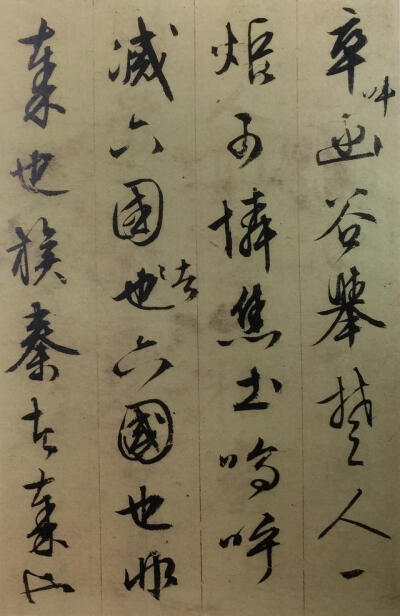 卒叫函谷舉楚人一
炬可憐焦土嗚呼
滅六國也者六國也非
秦也族秦者秦也